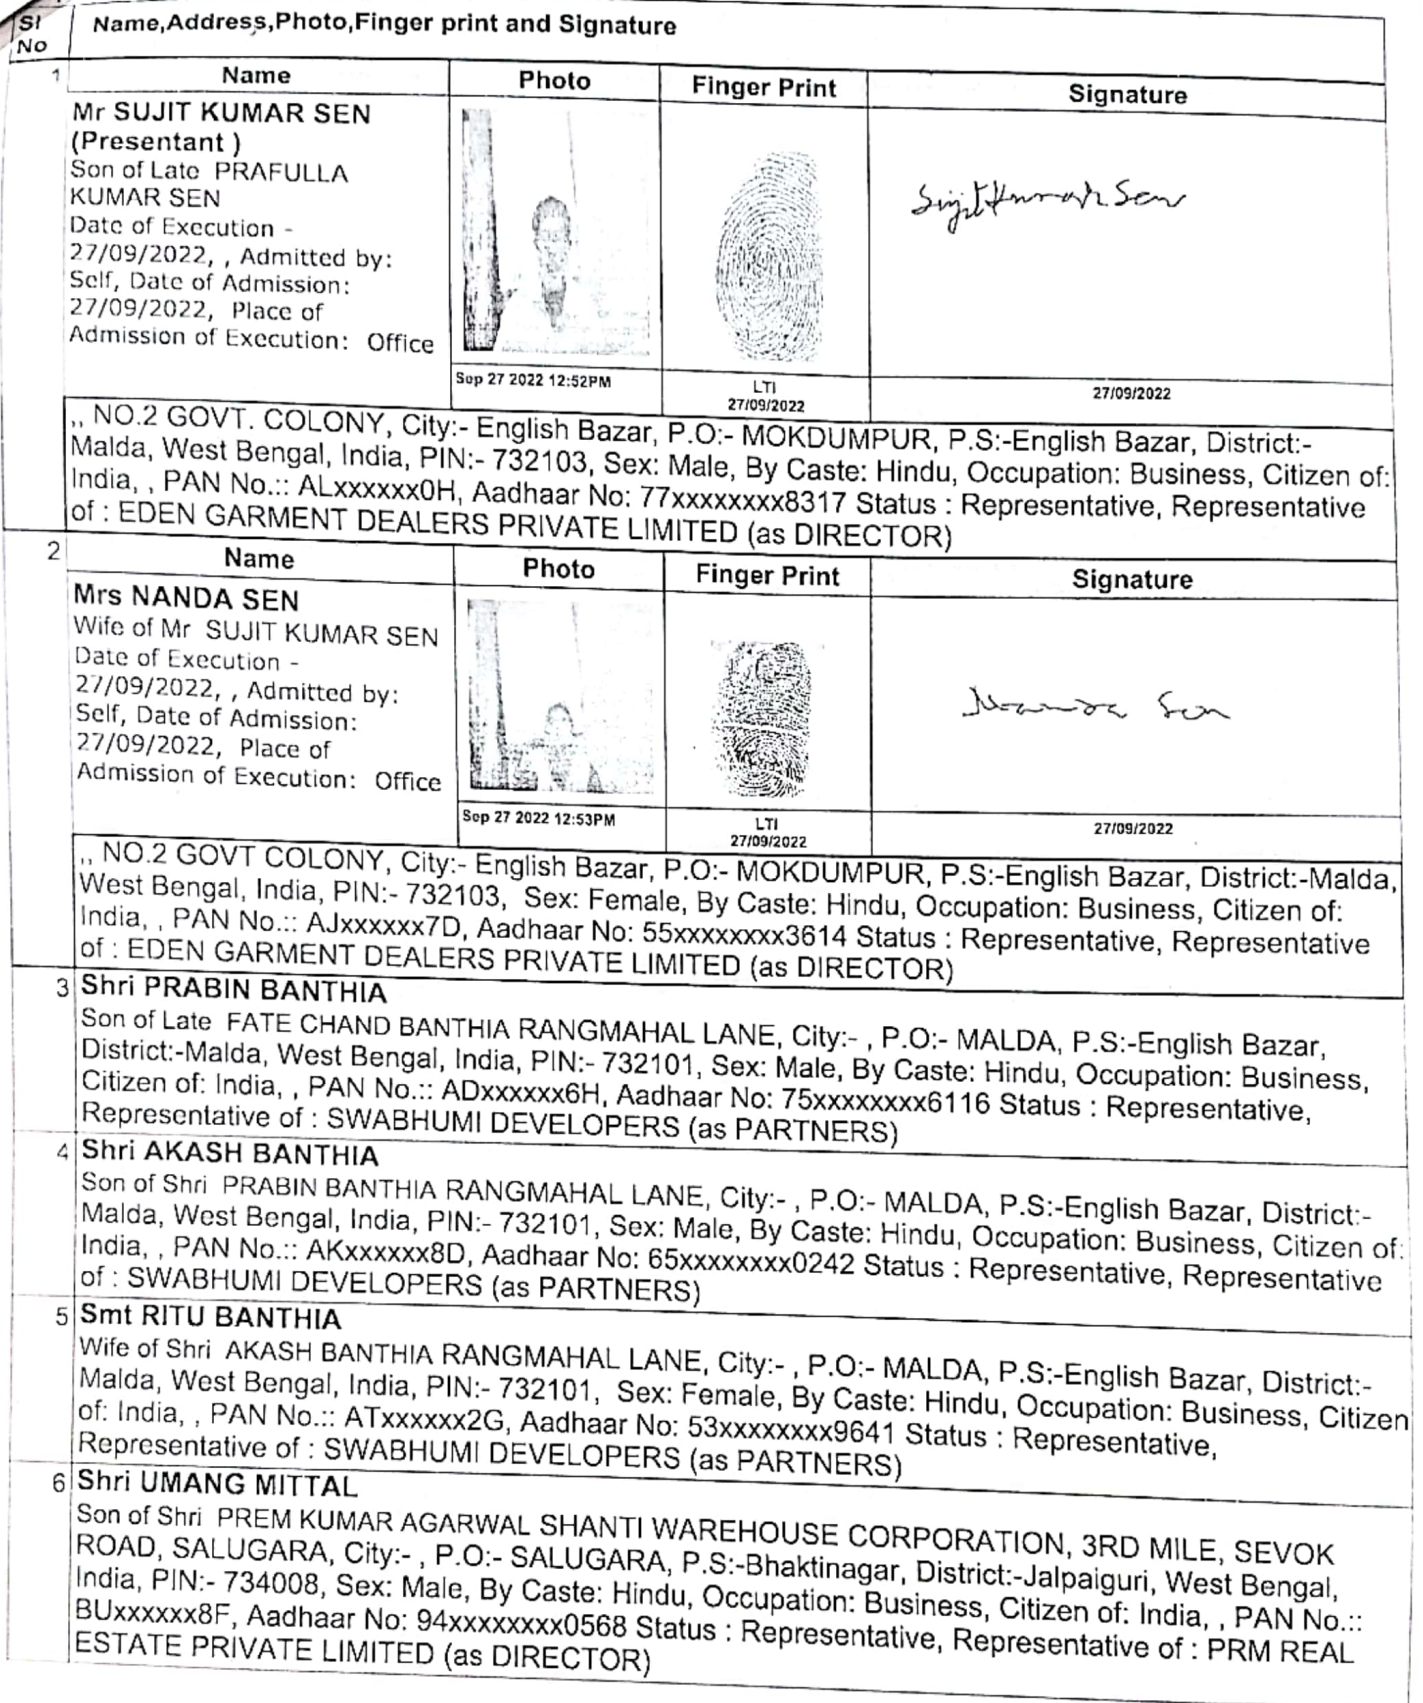 Sl
No
Name,Address,Photo,Finger print and Signature
1
Name
Photo
Finger Print
Signature
Mr SUJIT KUMAR SEN
(Presentant )
Son of Late PRAFULLA
KUMAR SEN
Date of Execution -
27/09/2022, , Admitted by:
Self, Date of Admission:
27/09/2022, Place of
Admission of Execution: Office
Sujit Kumar Sen
Sep 27 2022 12:52PM
LTI
27/09/2022
27/09/2022
,, NO.2 GOVT. COLONY, City:- English Bazar, P.O:- MOKDUMPUR, P.S:-English Bazar, District:-
Malda, West Bengal, India, PIN:- 732103, Sex: Male, By Caste: Hindu, Occupation: Business, Citizen of:
India, , PAN No.:: ALxxxxxx0H, Aadhaar No: 77xxxxxxxx8317 Status : Representative, Representative
of : EDEN GARMENT DEALERS PRIVATE LIMITED (as DIRECTOR)
2
Name
Photo
Finger Print
Signature
Mrs NANDA SEN
Wife of Mr SUJIT KUMAR SEN
Date of Execution -
27/09/2022, , Admitted by:
Self, Date of Admission:
27/09/2022, Place of
Admission of Execution: Office
Nanda Sen
Sep 27 2022 12:53PM
LTI
27/09/2022
27/09/2022
,, NO.2 GOVT COLONY, City:- English Bazar, P.O:- MOKDUMPUR, P.S:-English Bazar, District:-Malda,
West Bengal, India, PIN:- 732103, Sex: Female, By Caste: Hindu, Occupation: Business, Citizen of:
India, , PAN No.:: AJxxxxxx7D, Aadhaar No: 55xxxxxxxx3614 Status : Representative, Representative
of : EDEN GARMENT DEALERS PRIVATE LIMITED (as DIRECTOR)
3 Shri PRABIN BANTHIA
Son of Late FATE CHAND BANTHIA RANGMAHAL LANE, City:- , P.O:- MALDA, P.S:-English Bazar,
District:-Malda, West Bengal, India, PIN:- 732101, Sex: Male, By Caste: Hindu, Occupation: Business,
Citizen of: India, , PAN No.:: ADxxxxxx6H, Aadhaar No: 75xxxxxxxx6116 Status : Representative,
Representative of : SWABHUMI DEVELOPERS (as PARTNERS)
4 Shri AKASH BANTHIA
Son of Shri PRABIN BANTHIA RANGMAHAL LANE, City:- , P.O:- MALDA, P.S:-English Bazar, District:-
Malda, West Bengal, India, PIN:- 732101, Sex: Male, By Caste: Hindu, Occupation: Business, Citizen of:
India, , PAN No.:: AKxxxxxx8D, Aadhaar No: 65xxxxxxxx0242 Status : Representative, Representative
of : SWABHUMI DEVELOPERS (as PARTNERS)
5 Smt RITU BANTHIA
Wife of Shri AKASH BANTHIA RANGMAHAL LANE, City:- , P.O:- MALDA, P.S:-English Bazar, District:-
Malda, West Bengal, India, PIN:- 732101, Sex: Female, By Caste: Hindu, Occupation: Business, Citizen
of: India, , PAN No.:: ATxxxxxx2G, Aadhaar No: 53xxxxxxxx9641 Status : Representative,
Representative of : SWABHUMI DEVELOPERS (as PARTNERS)
6 Shri UMANG MITTAL
Son of Shri PREM KUMAR AGARWAL SHANTI WAREHOUSE CORPORATION, 3RD MILE, SEVOK
ROAD, SALUGARA, City:- , P.O:- SALUGARA, P.S:-Bhaktinagar, District:-Jalpaiguri, West Bengal,
India, PIN:- 734008, Sex: Male, By Caste: Hindu, Occupation: Business, Citizen of: India, , PAN No.::
BUxxxxxx8F, Aadhaar No: 94xxxxxxxx0568 Status : Representative, Representative of : PRM REAL
ESTATE PRIVATE LIMITED (as DIRECTOR)